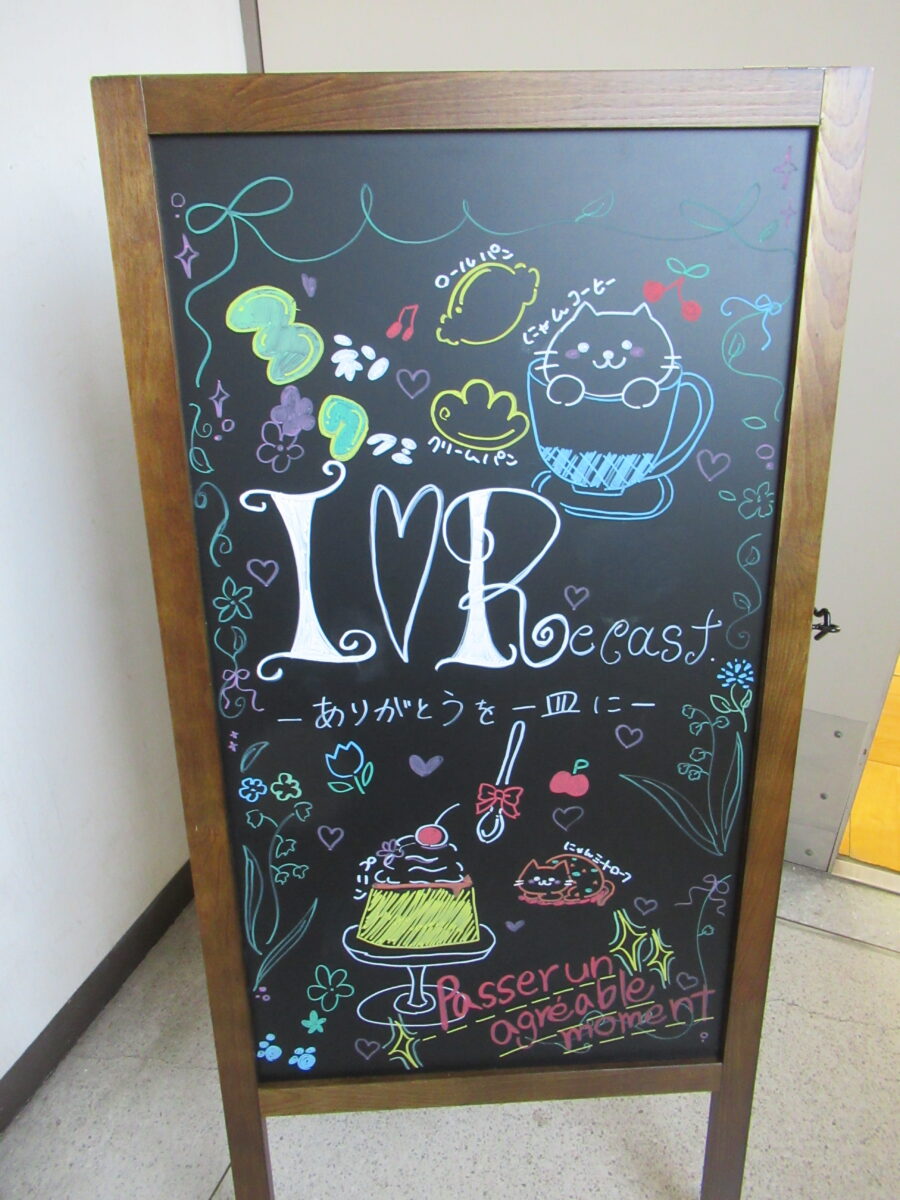 ロールパン
にゃんコーヒー
3ネン
7クミ
クリームパン
I ♡ Recast.
－ありがとうを一皿に－
プリン
にゃんミートローフ
Passer un
agréable
moment